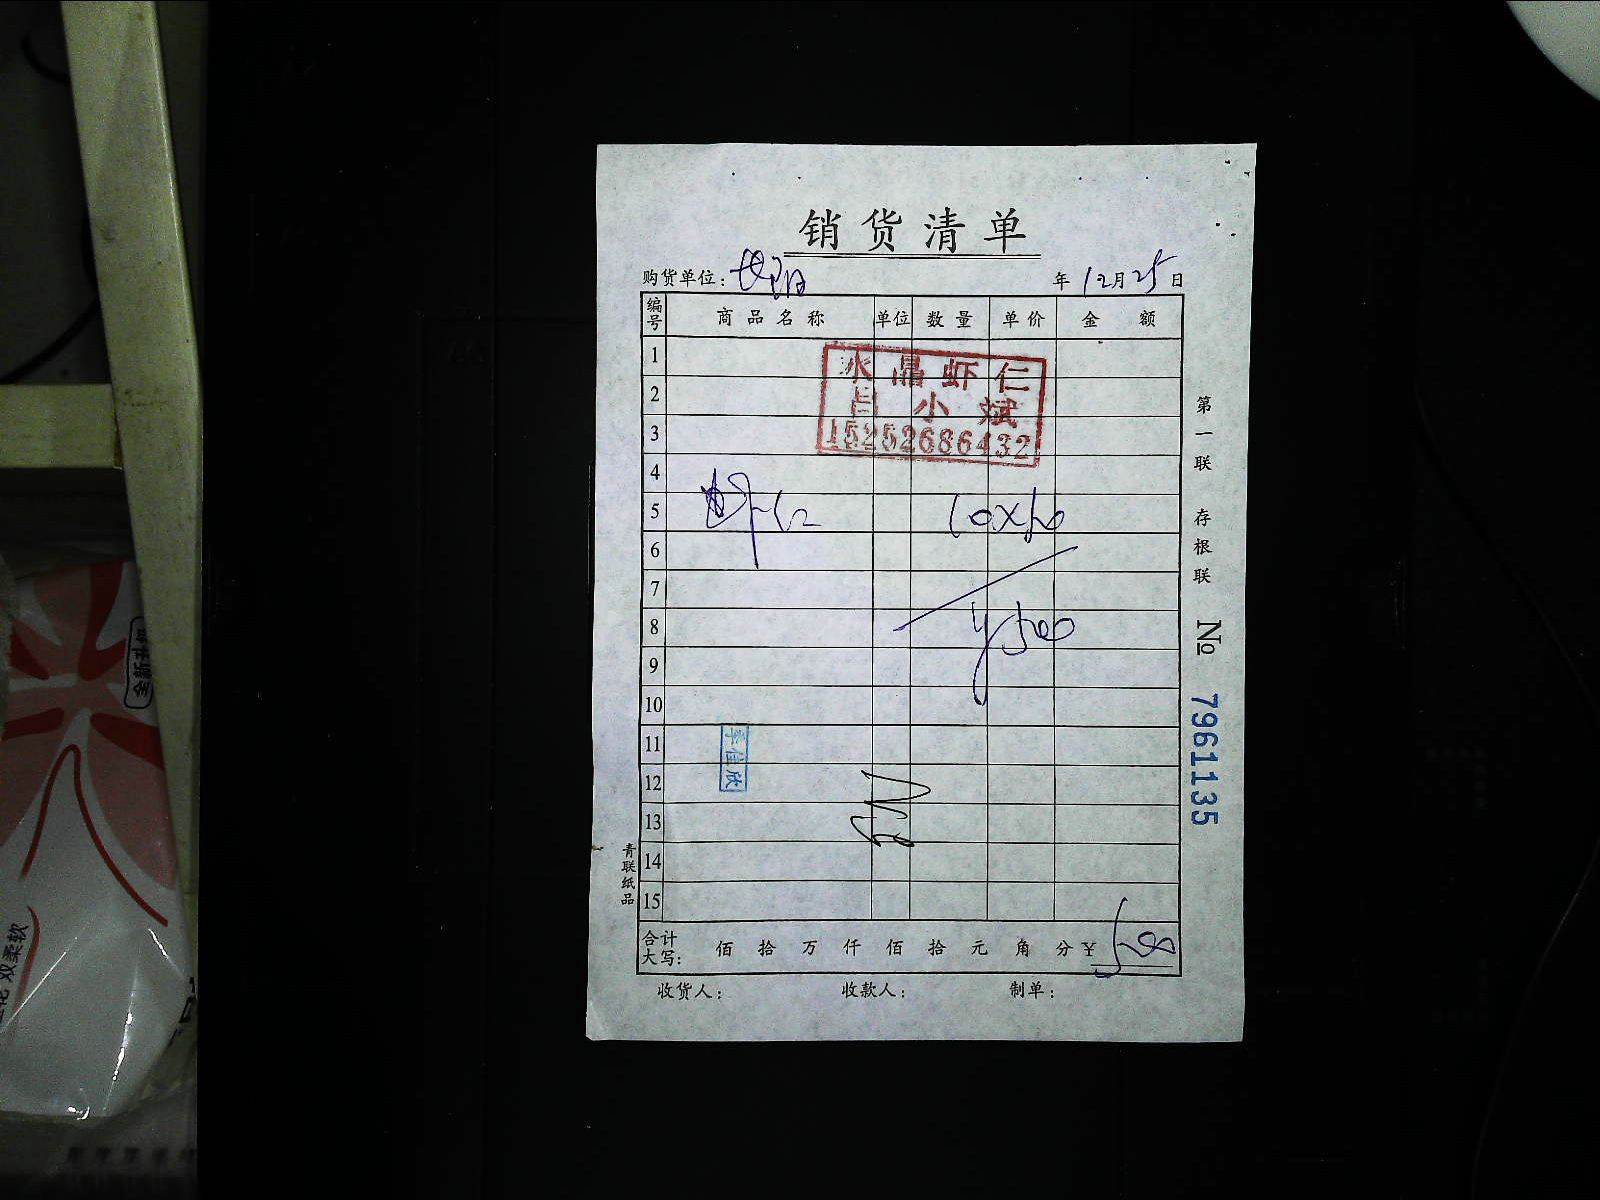 销货清单
购货单位: 年 12月25日
编号 商品名称 单位 数量 单价 金额
1
水晶虾仁
2
吕小斌
3
15252686432
4
5 虾仁 10×50
6
7
8 ¥500
9
10
11
12
13
14
15
合计大写: 佰 拾 万 仟 佰 拾 元 角 分 ¥500
收货人: 收款人: 制单:
季佳欣
青联纸品
第一联 存根联
No 7961135
全新升级
双柔软